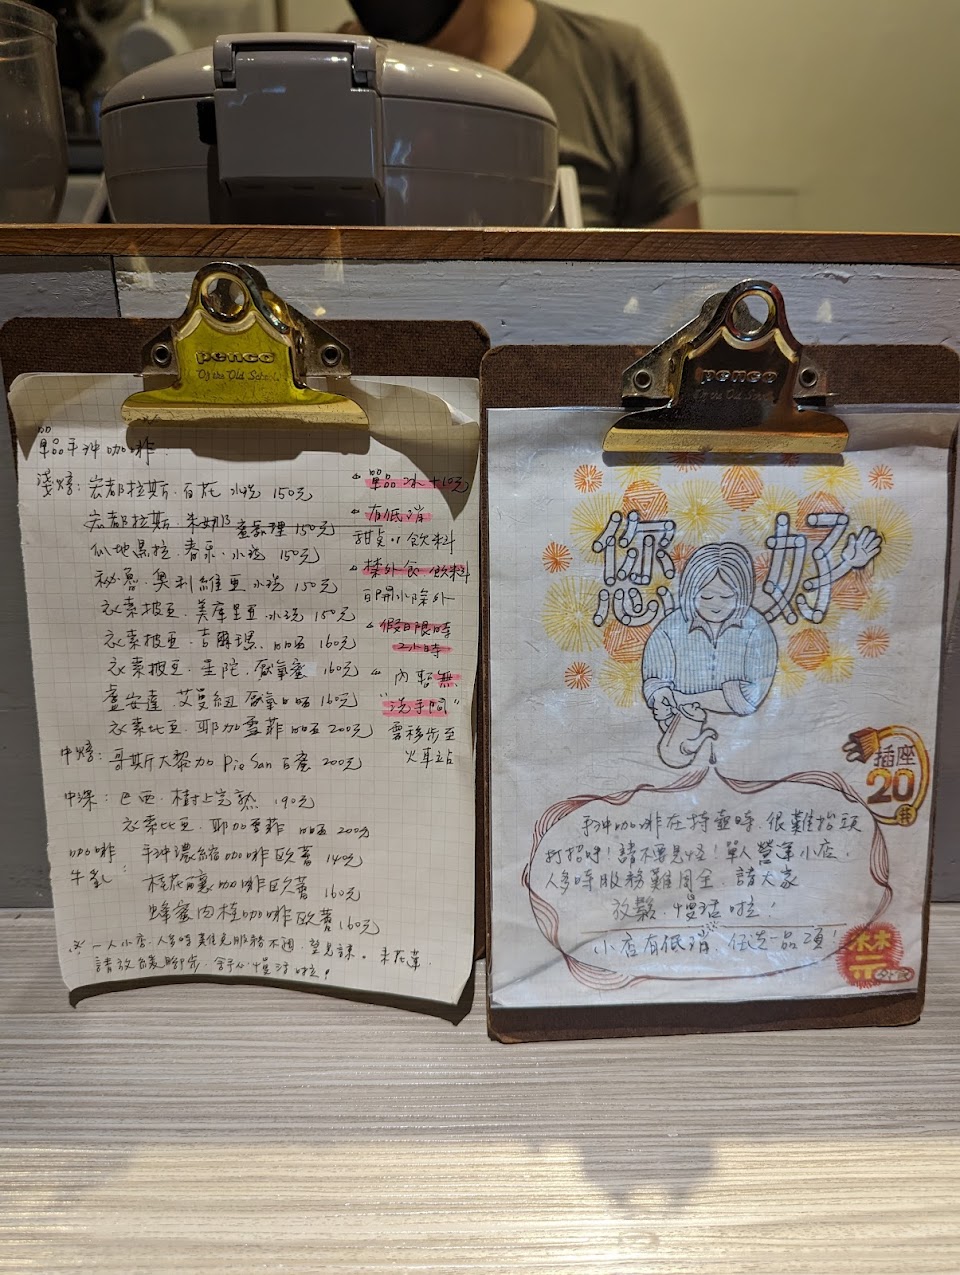 penco
Of the Old School
單品手沖咖啡
淺焙：宏都拉斯．百花 水洗 150元
宏都拉斯．朱娜 蜜處理 150元
瓜地馬拉．春泉．小洗 150元
秘魯．奧利維亞 水洗 150元
衣索披亞．美庫里亞 水洗 150元
衣索披亞．吉爾璟．日晒 160元
衣索披亞．聖陀．厭氧蜜 160元
盧安達．艾曼紐 厭氧日晒 160元
衣索比亞．耶加雪菲 日晒 200元
中焙：哥斯大黎加 Pie San 百蜜 200元
中深：巴西．樹上完熟 190元
衣索比亞．耶加雪菲 日晒 200元
咖啡牛乳：
手沖濃縮咖啡歐蕾 140元
桂花釀咖啡歐蕾 160元
蜂蜜肉桂咖啡歐蕾 160元
※ 一人小店．人多時難免服務不週，望見諒。來花蓮．
請放慢腳步，舒心慢活啦！
單品冰+10元
有低消
甜點or飲料
禁外食．飲料
白開水除外
假日限時
2小時
內暫無
"洗手間"
需移步至
火車站
penco
Of the Old School
您好
插座
20
元
手沖咖啡在持壺時．很難抬頭
打招呼！請不要見怪！單人營運小店．
人多時服務難周全．請大家
放鬆．慢活啦！
小店有低消．任選一品項！